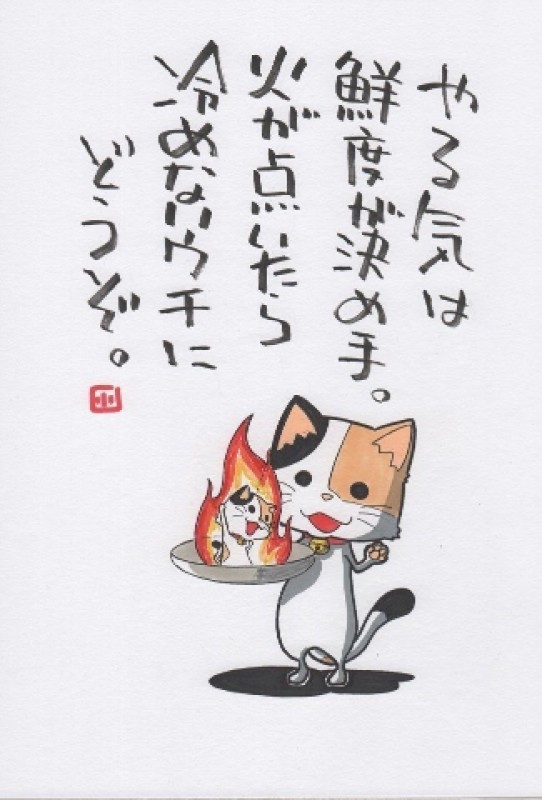 やる気は
鮮度が決め手。
火が点いたら
冷めないウチに
どうぞ。